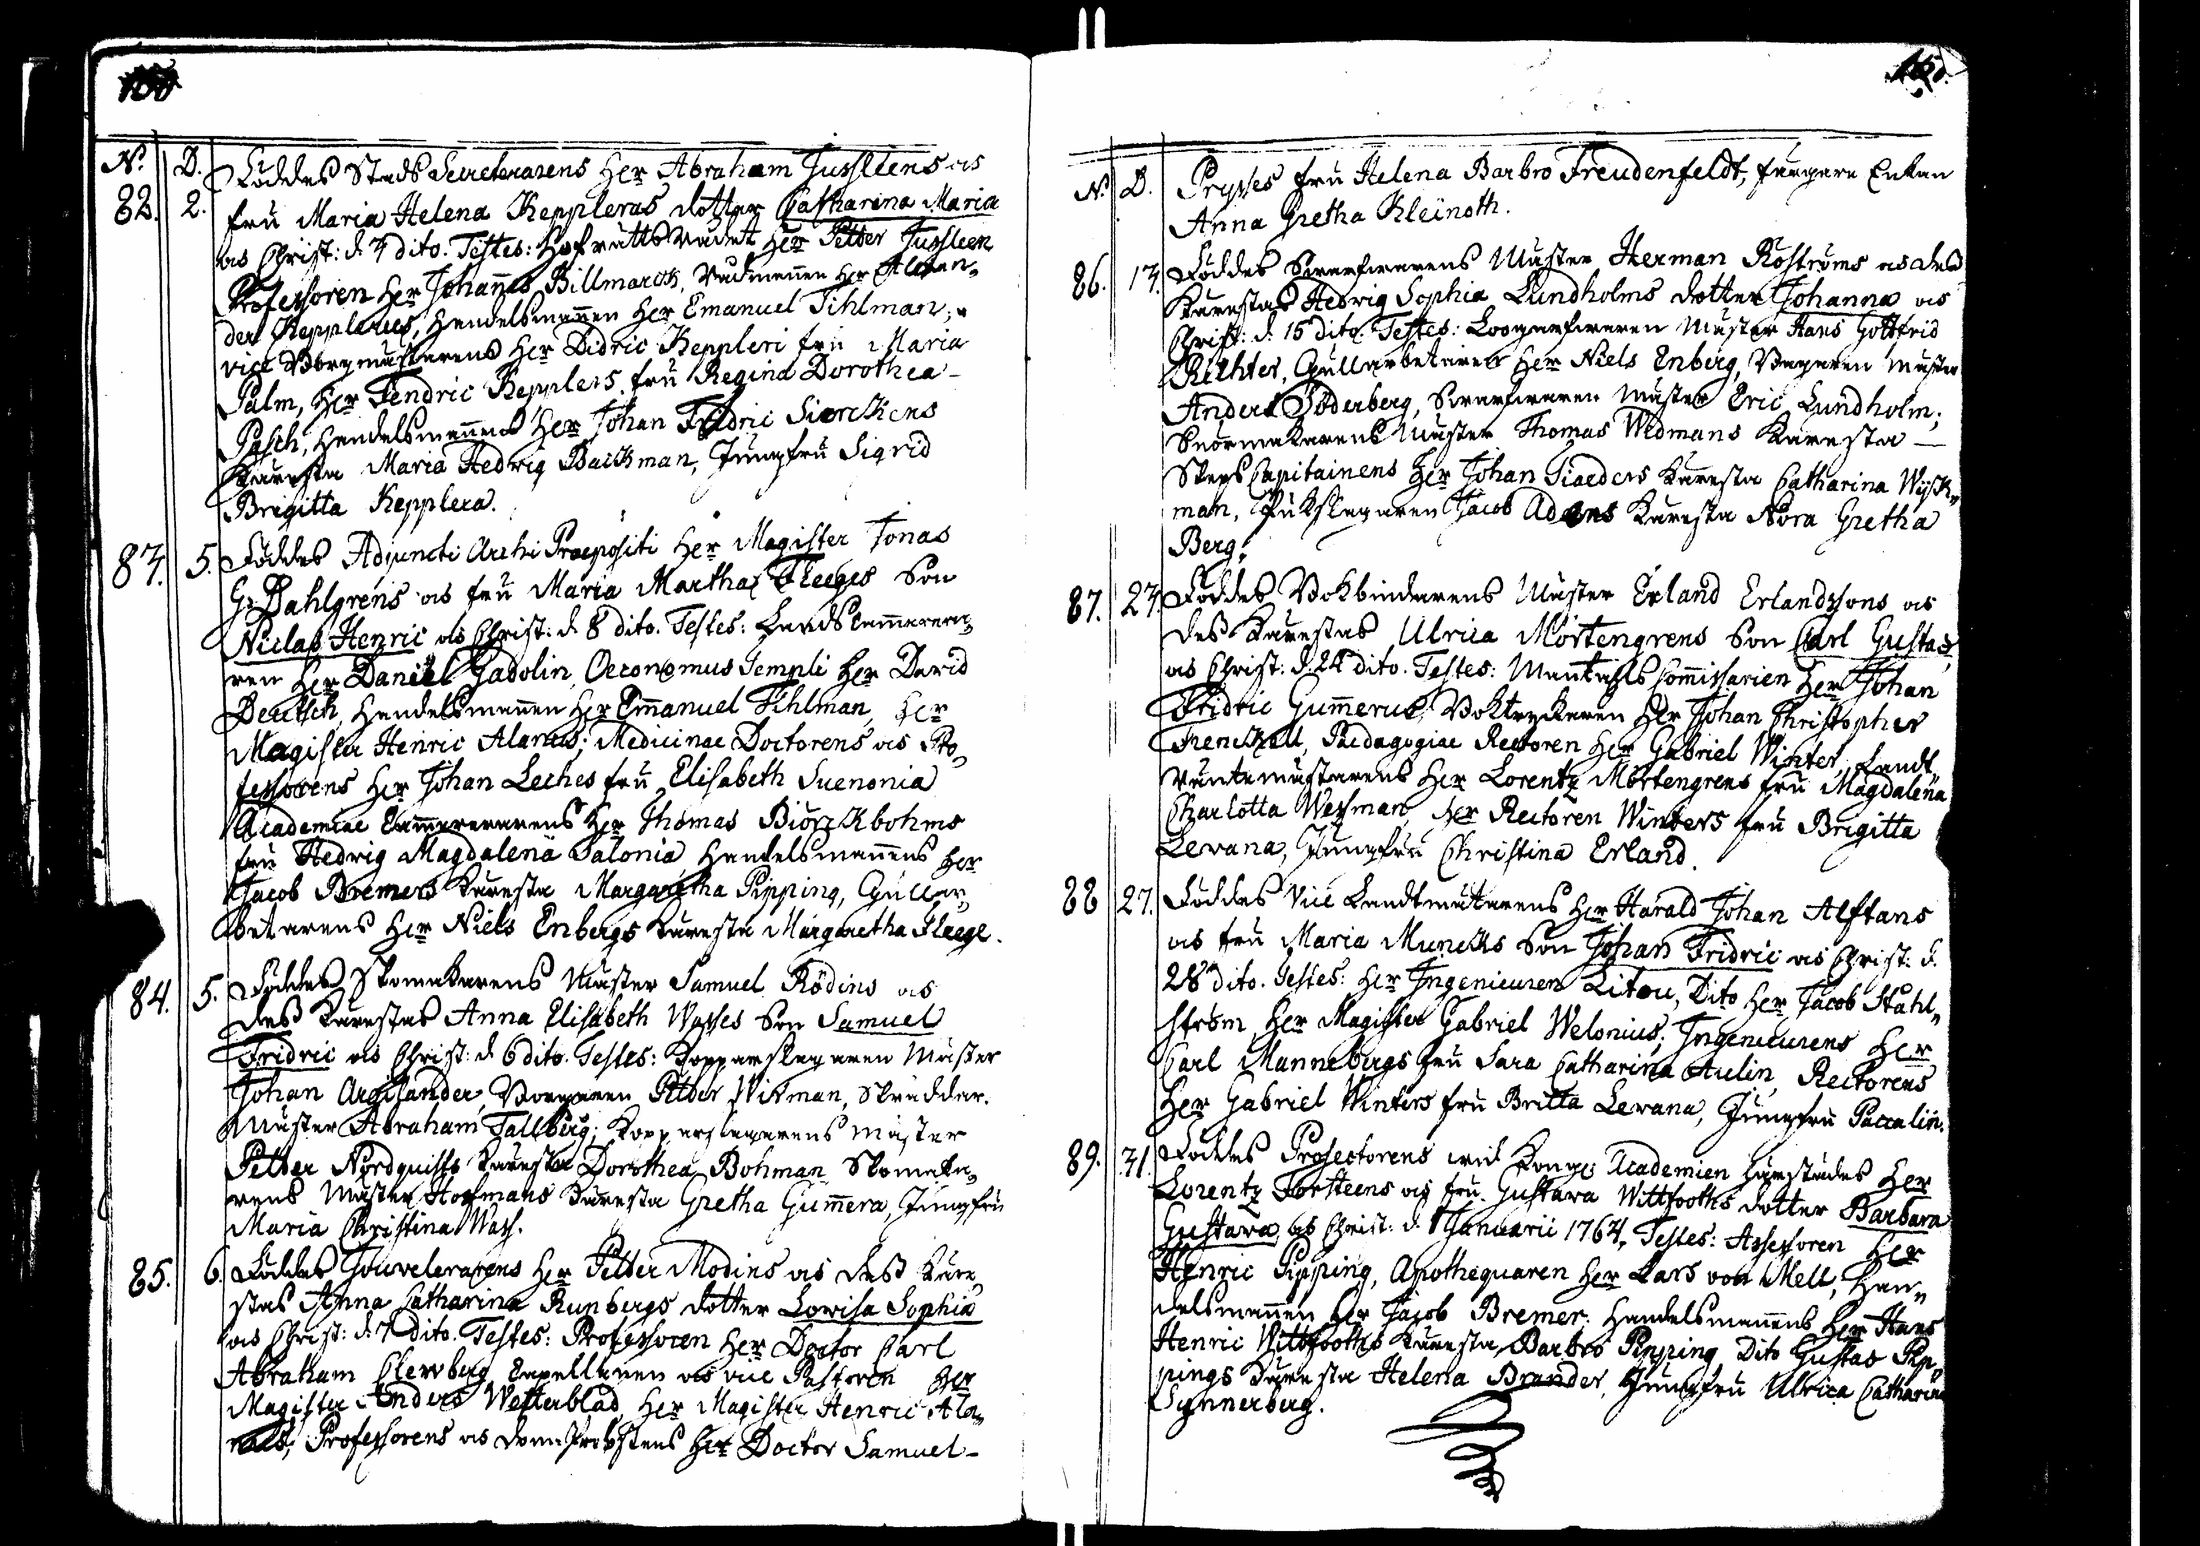 N:o D.
82. 2. Föddes Stads Secreterarens Her Abraham Jussleens os
fru Maria Helena Kepplerus dotter Catharina Maria
os Christ: d. 3 dito. Testes: Hofrätts Rådet Her Petter Jussleen
Professoren Her Johannes Billmarck, Rådmannen Her Alexan„
der Kepplerus, Handelsmannen Her Emanuel Tihlman;
vice Borgmästarens Her Didric Kepplers fru Maria
Palm, Her Fendric Kepplers fru Regina Dorothea
Pasch, Handelsmannens Her Johan Fridric Sierckens
Käresta Maria Hedvig Backman, Jungfru Sigrid
Brigitta Kepplera.
83. 5. Föddes Adjuncti Archi Præpositi Her Magister Jonas
G: Dahlgrens os fru Maria Martha Fleeges Son
Niclas Henric os Christ: d. 8 dito. Testes: Lands Cammerera„
ren Her Daniel Gadolin, Oeconomus Templi Her David
Deutsch, Handelsmannen Her Emmanuel Tihlman, Her
Magister Henric Alanus; Medicinae Doctorens os Pro„
fessorens Her Johan Leches fru Elisabeth Suenonia
Academiae Cammererarens Her Thomas Biörckbohms
fru Hedvig Magdalena Salonia, Handelsmannens Her
Jacob Bremers Käresta Margaretha Pipping, Gullar„
betarens Her Niels Enbergs Käresta Margaretha Fleege.
84. 5. Föddes Skomakarens Mäster Samuel Rödins os
Dess Kärestas Anna Elisabeth Wasses Son Samuel
Fridric os Christ: d. 6 dito. Testes: Kopparslagaren Mäster
Johan Argilander, Borgaren Petter Wikman, Skräddar.
Mäster Abraham Fallberg; Kopparslagarens Mäster
Petter Nordquists Käresta Dorothea Bohman, Skomaka„
rens Mäster Hoffmans Käresta Gretha Gummera, Jungfru
Maria Christina Wass.
85. 6. Föddes Jouvelerarens Her Petter Modins os Dess Käre
stas Anna Catharina Runbergs dotter Lovisa Sophia
os Christ: d. 7 dito. Testes: Professoren Her Doctor Carl
Abraham Clewberg, Capellanen os vice Pastoren Her
Magister Anders Wetterblad, Her Magister Henric Ala„
nus; Professorens os Dom-Probstens Her Doctor Samuel
N:o D. Prysses fru Helena Barbro Freudenfeldt, Färgare Enkan
Anna Gretha Kleinoth.
86. 13. Föddes Swarfwarens Mäster Herman Roströms os Dess
Kärestas Hedvig Sophia Lundholms dotter Johanna os
Christ: d. 15 dito. Testes: Loogarfwaren Mäster Hans Gottfrid
Richter, Gullarbetaren Her Niels Enberg, Bagaren Mäster
Anders Söderberg, Swarfwaren Mäster Eric Lundholm;
Snörmakarens Mäster Thomas Widmans Käresta
Skeps Capitainens Her Johan Siaeders Käresta Catharina Wyk„
man, Pukslagaren Jacob Adams Käresta Nora Gretha
Berg.
87. 23. Föddes Bokbindarens Mäster Erland Erlandssons os
Dess Kärestas Ulrica Mörtengrens Son Carl Gustaf,
os Christ: d. 24 dito. Testes: Mantahls Commissarien Her Johan
Fridric Gummerus, Boktryckaren Her Johan Christopher
Frenckell, Paedagogiae Rectoren Her Gabriel Winter, Landt
räntemästarens Her Lorentz Mörtengrens fru Magdalena
Charlotta Wessman, Her Rectoren Winters fru Brigitta
Levana, Jungfru Christina Erland.
88 27. Föddes Vice Landtmätarens Her Harald Johan Alftans
os fru Maria Muncks Son Johan Fridric os Christ: d.
28 dito. Testes: Her Ingenieuren Litou, Dito Her Jacob Stahl„
ström, Her Magister Gabriel Welonius; Ingenieurens Her
Carl Mannebergs fru Sara Catharina Aulin, Rectorens
Her Gabriel Winters fru Britta Levana, Jungfru Paccalin.
89. 31. Föddes Prosectorens wid Kongl. Academien härstädes Her
Lorentz Torsteens os fru Gustava Wittfooths dotter Barbara
Gustava os Christ: d. 1 Januarii 1764, Testes: Assessoren Her
Henric Pipping, Apothequaren Her Lars von Mell, Han„
delsmannen Her Jacob Bremer; Handelsmannens Her Hans
Henric Wittfooths Käresta Barbro Pipping, Dito Gustaf Pip„
pings Käresta Helena Brander, Jungfru Ulrica Catharina
Synnerberg.